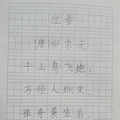 江雪
(唐)柳宗元
千山鸟飞绝，
万径人踪灭。
孤舟蓑笠翁，